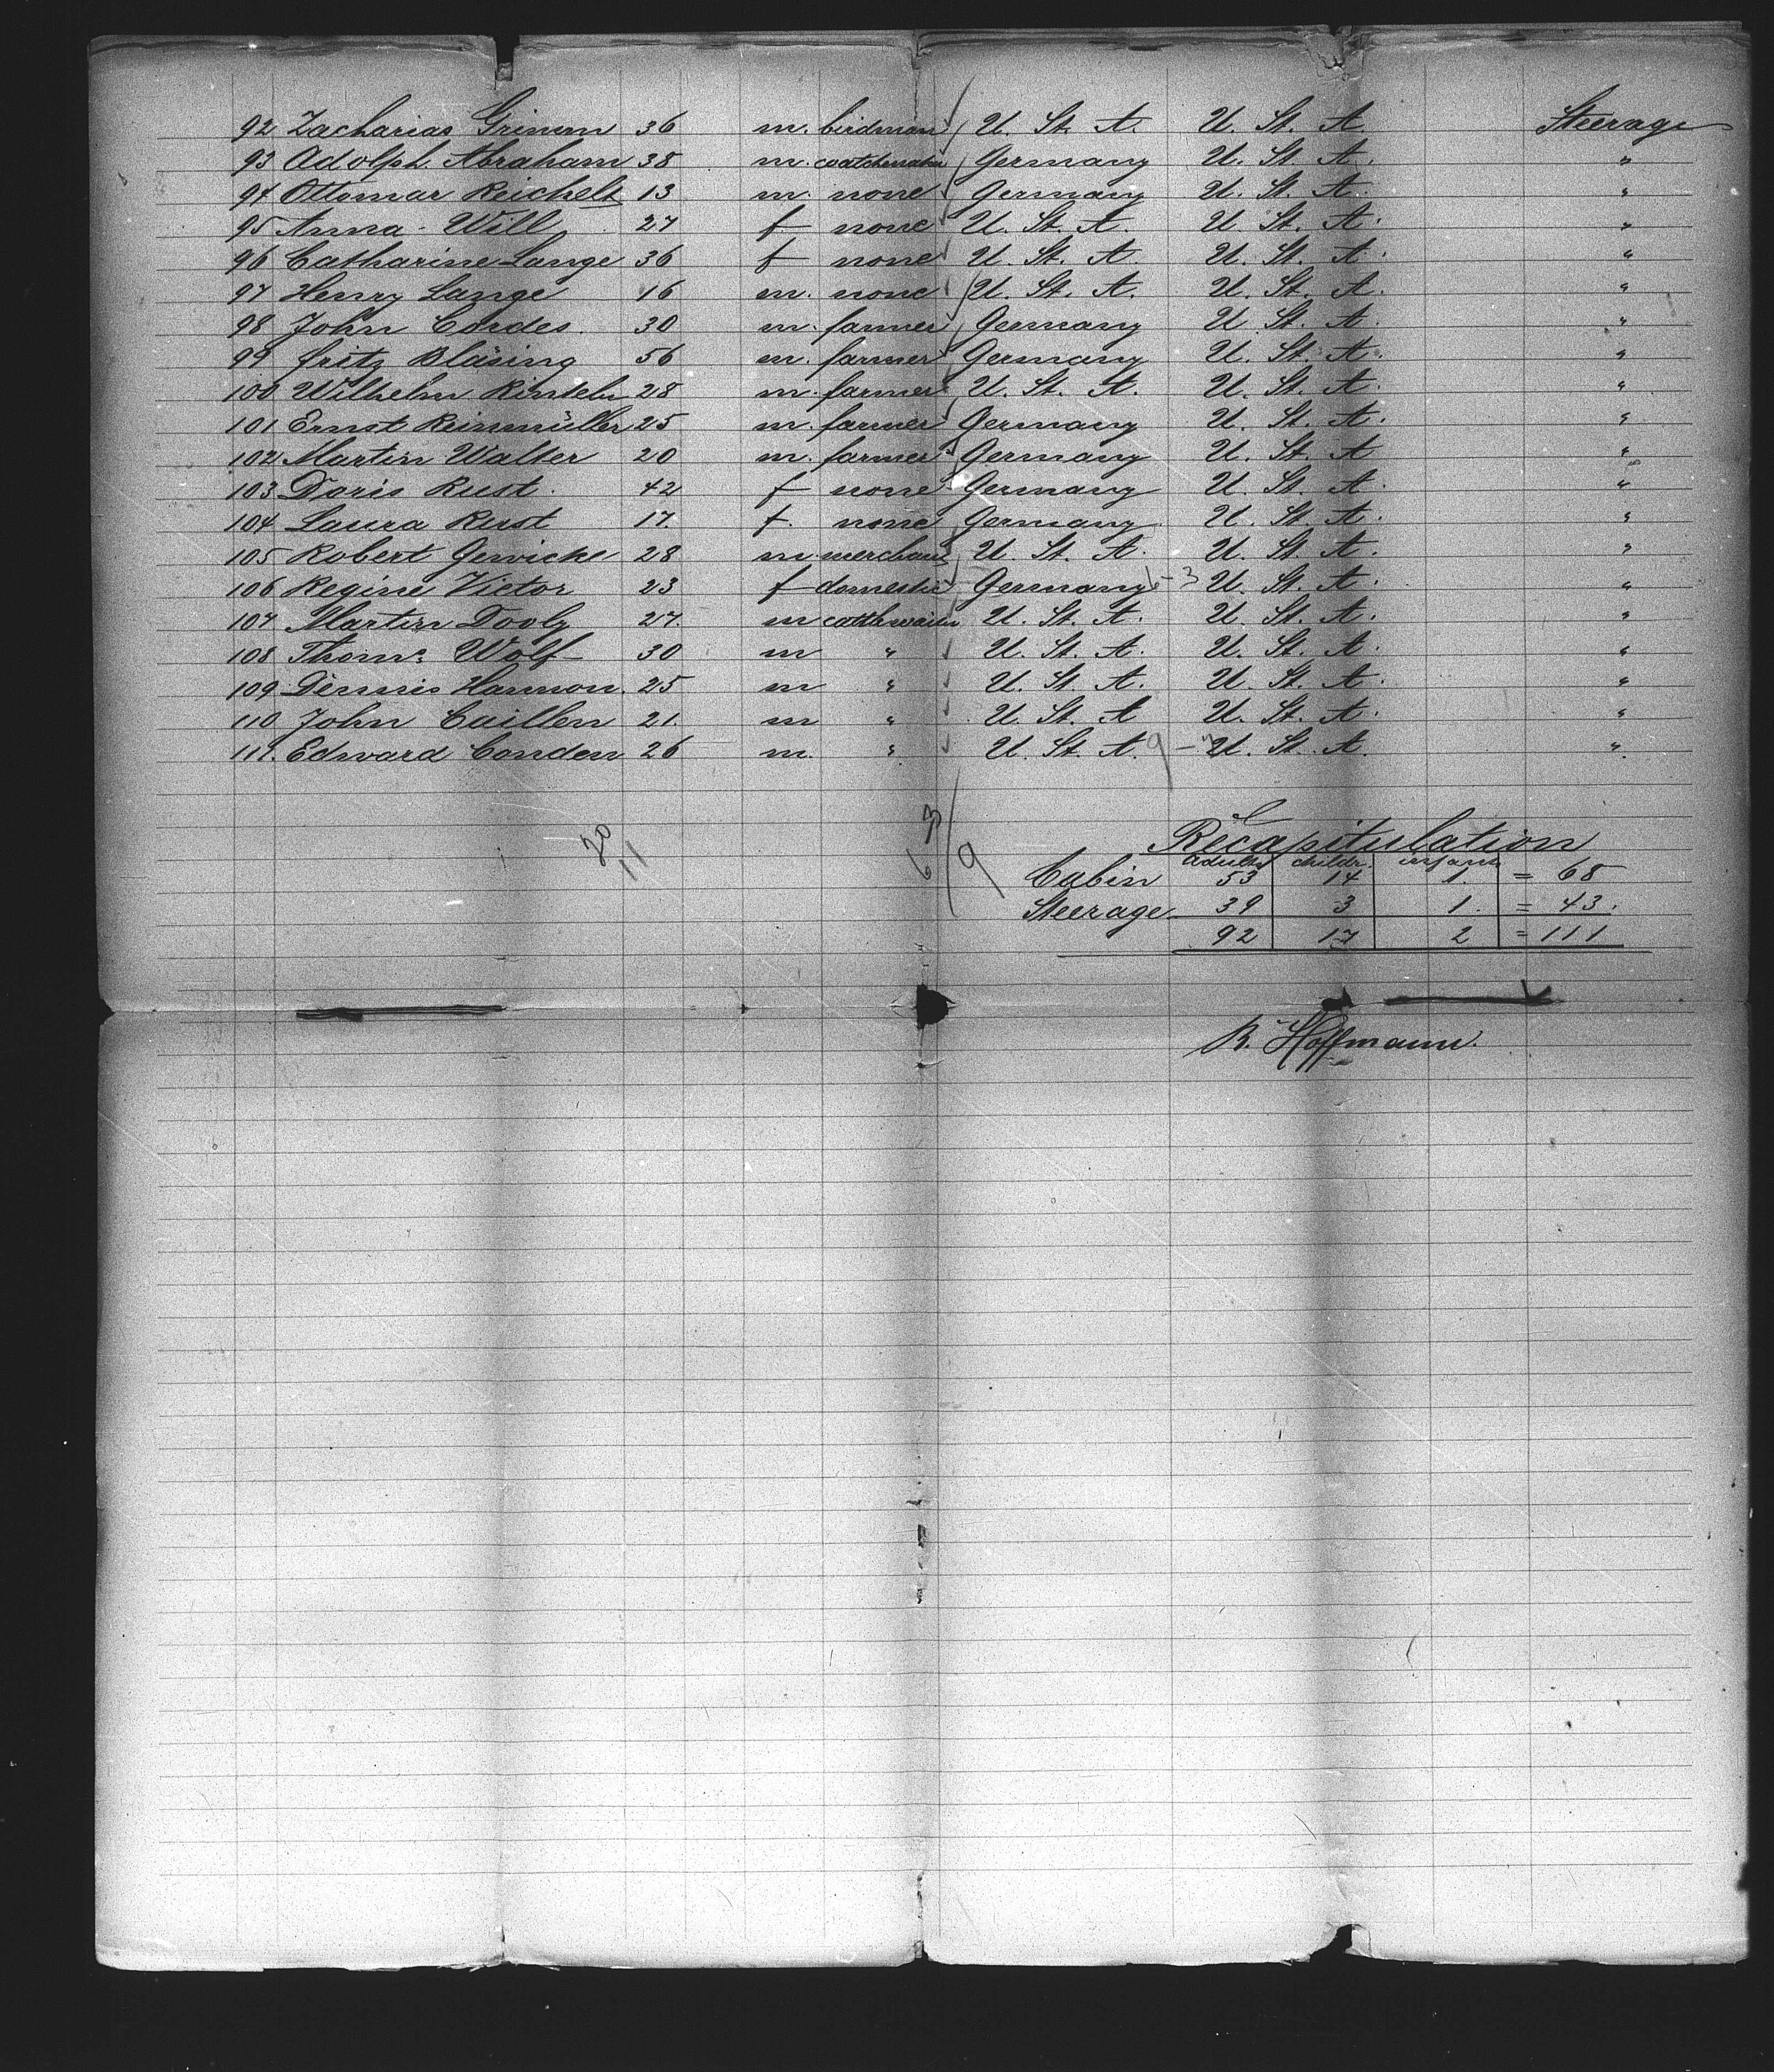 92 Zacharias Grimm 36 m. birdman U. St. A. U. St. A. Steerage
93 Adolph Abraham 38 m. watchmaker Germany U. St. A. "
94 Ottomar Reichelt 13 m. none Germany U. St. A. "
95 Anna Will 27 f none U. St. A. U. St. A. "
96 Catharine Lange 36 f none U. St. A. U. St. A. "
97 Henry Lange 16 m. none U. St. A. U. St. A. "
98 John Cordes. 30 m. farmer Germany U. St. A. "
99 Fritz Bläsing 56 m. farmer Germany U. St. A. "
100 Wilhelm Rinteln 28 m. farmer U. St. A. U. St. A. "
101 Ernst Reinmüller 25 m. farmer Germany U. St. A. "
102 Martin Walter 20 m. farmer Germany U. St. A "
103 Doris Rust. 42 f none Germany U. St. A. "
104 Laura Rust 17. f. none Germany U. St. A. "
105 Robert Gewicke 28 m merchant U. St. A. U. St. A. "
106 Regine Victor 23 f domestic Germany 6-3 U. St. A. "
107 Martin Dooly 27. m U. St. A. U. St. A. "
108 Thoms Wolf 30 m " U. St. A. U. St. A. "
109 Dennis Hannon. 25 m " U. St. A. U. St. A. "
110 John Cuillen 21. m " U. St. A U. St. A. "
111. Edward Conden 26 m. " U. St. A. 9 - U. St. A. "
20
11
6 3
9
Recapitulation
adults childr. infants
Cabin 53 14 1. = 68
Steerage 39 3 1. = 43.
92 17 2 = 111
R. Hoffmann.